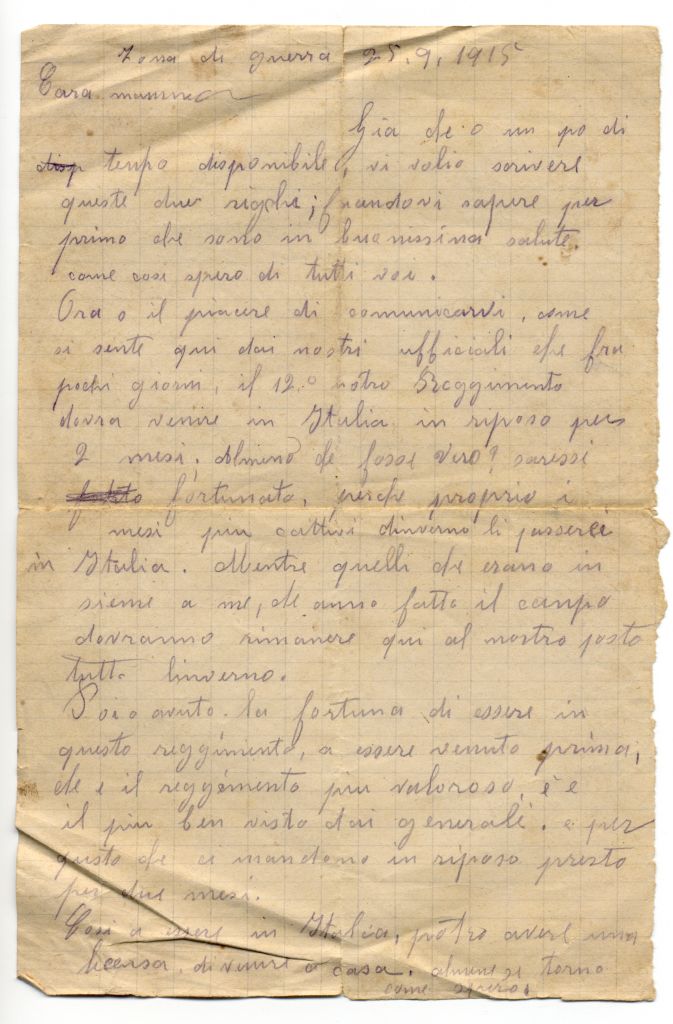 Zona di guerra 25.9.1915
Cara mamma
Gia che o un po di
tempo disponibile, vi volio scrivere
queste due righi; facendovi sapere per
primo che sono in buonissima salute.
come cosi spero di tutti voi.
Ora o il piacere di comunicarvi, come
si sente qui dai nostri ufficiali che fra
pochi giorni, il 12.º nostro Reggimento
dovra venire in Italia in riposo per
2 mesi. Almeno che fosse vero? saressi
fortunato, perche proprio i
mesi piu cattivi dinverno li passerei
in Italia. Mentre quelli che erano in
sieme a me, che anno fatto il campo
dovranno rimanere qui al nostro posto
tutto linverno.
Poi o avuto la fortuna di essere in
questo reggimento, a essere venuto prima,
che e il reggimento piu valoroso, é e
il piu ben visto dai generali. e per
questo che ci mandono in riposo presto
per due mesi.
Cosi a essere in Italia, potro avere una
licensa, di venire a casa. almeno se torno
come spero.